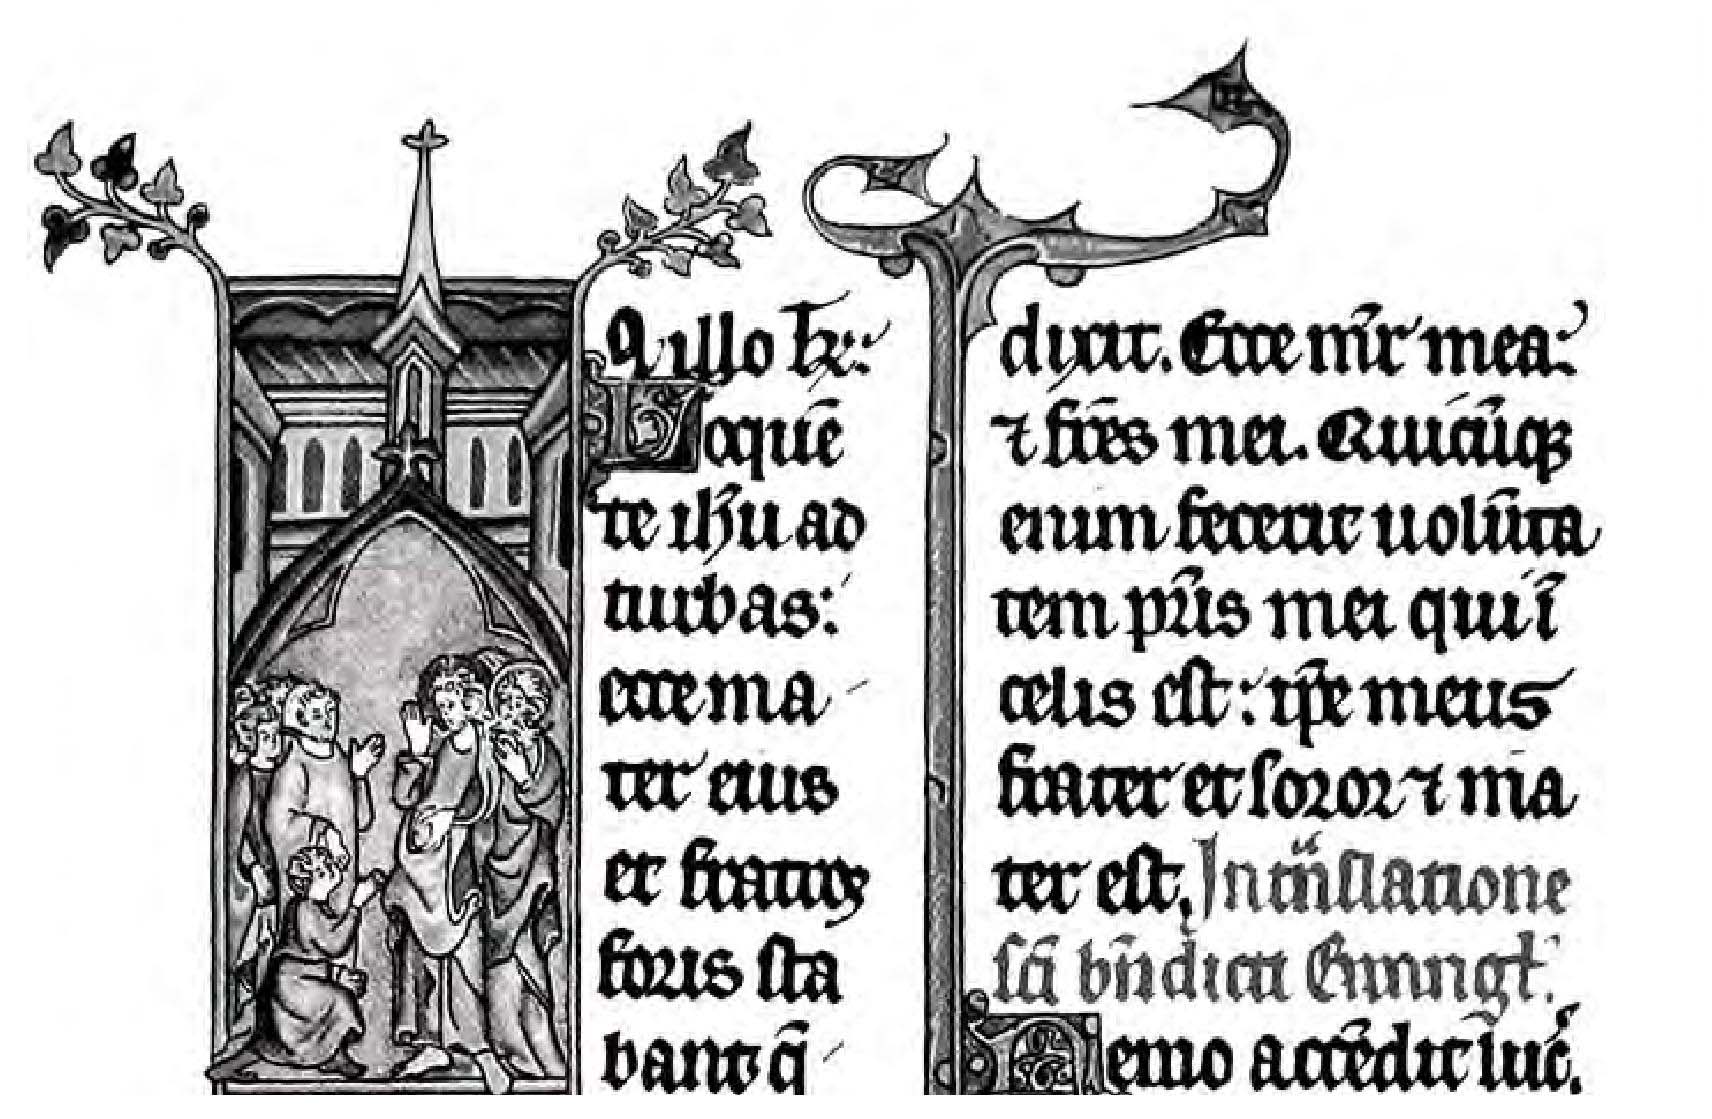 In illo tp̄r:
Loquē
te ih̄u ad
turbas:
ecce ma
ter eius
et fratres
foris sta
bant q̄
dixit. Ecce mr̄ mea:
⁊ fr̄es mei. Quicūqꝫ
enim fecerit uolūta
tem pr̄is mei qui ī
celis est: ip̄e meus
frater et soror ⁊ ma
ter est. In trāslatione
sc̄i bn̄dicti Euuāgl.
Nemo accēdit luc̄.